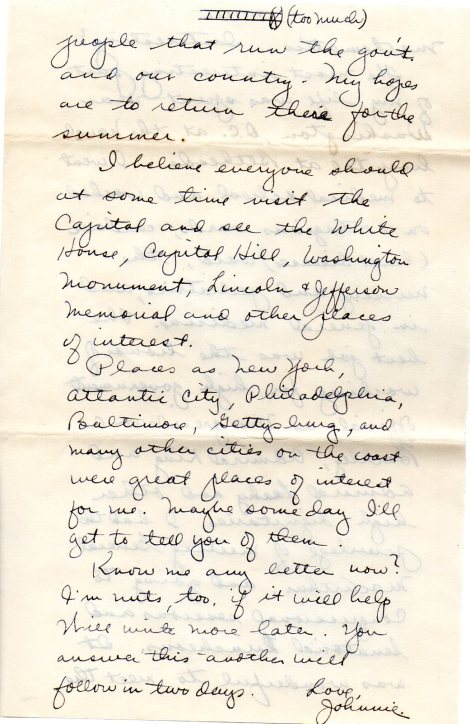 (too much)
people that run the gov't.
and our country. My hopes
are to return there for the
summer.
I believe everyone should
at some time visit the
Capital and see the White
House, Capital Hill, Washington
Monument, Lincoln & Jefferson
Memorial and other places
of interest.
Places as New York,
Atlantic City, Philadelphia,
Baltimore, Gettysburg, and
many other cities on the coast
were great places of interest
for me. Maybe some day I'll
get to tell you of them.
Know me any better now?
I'm nuts, too, if it will help
Will write more later. You
answer this another will
follow in two days. Love,
Johnnie.